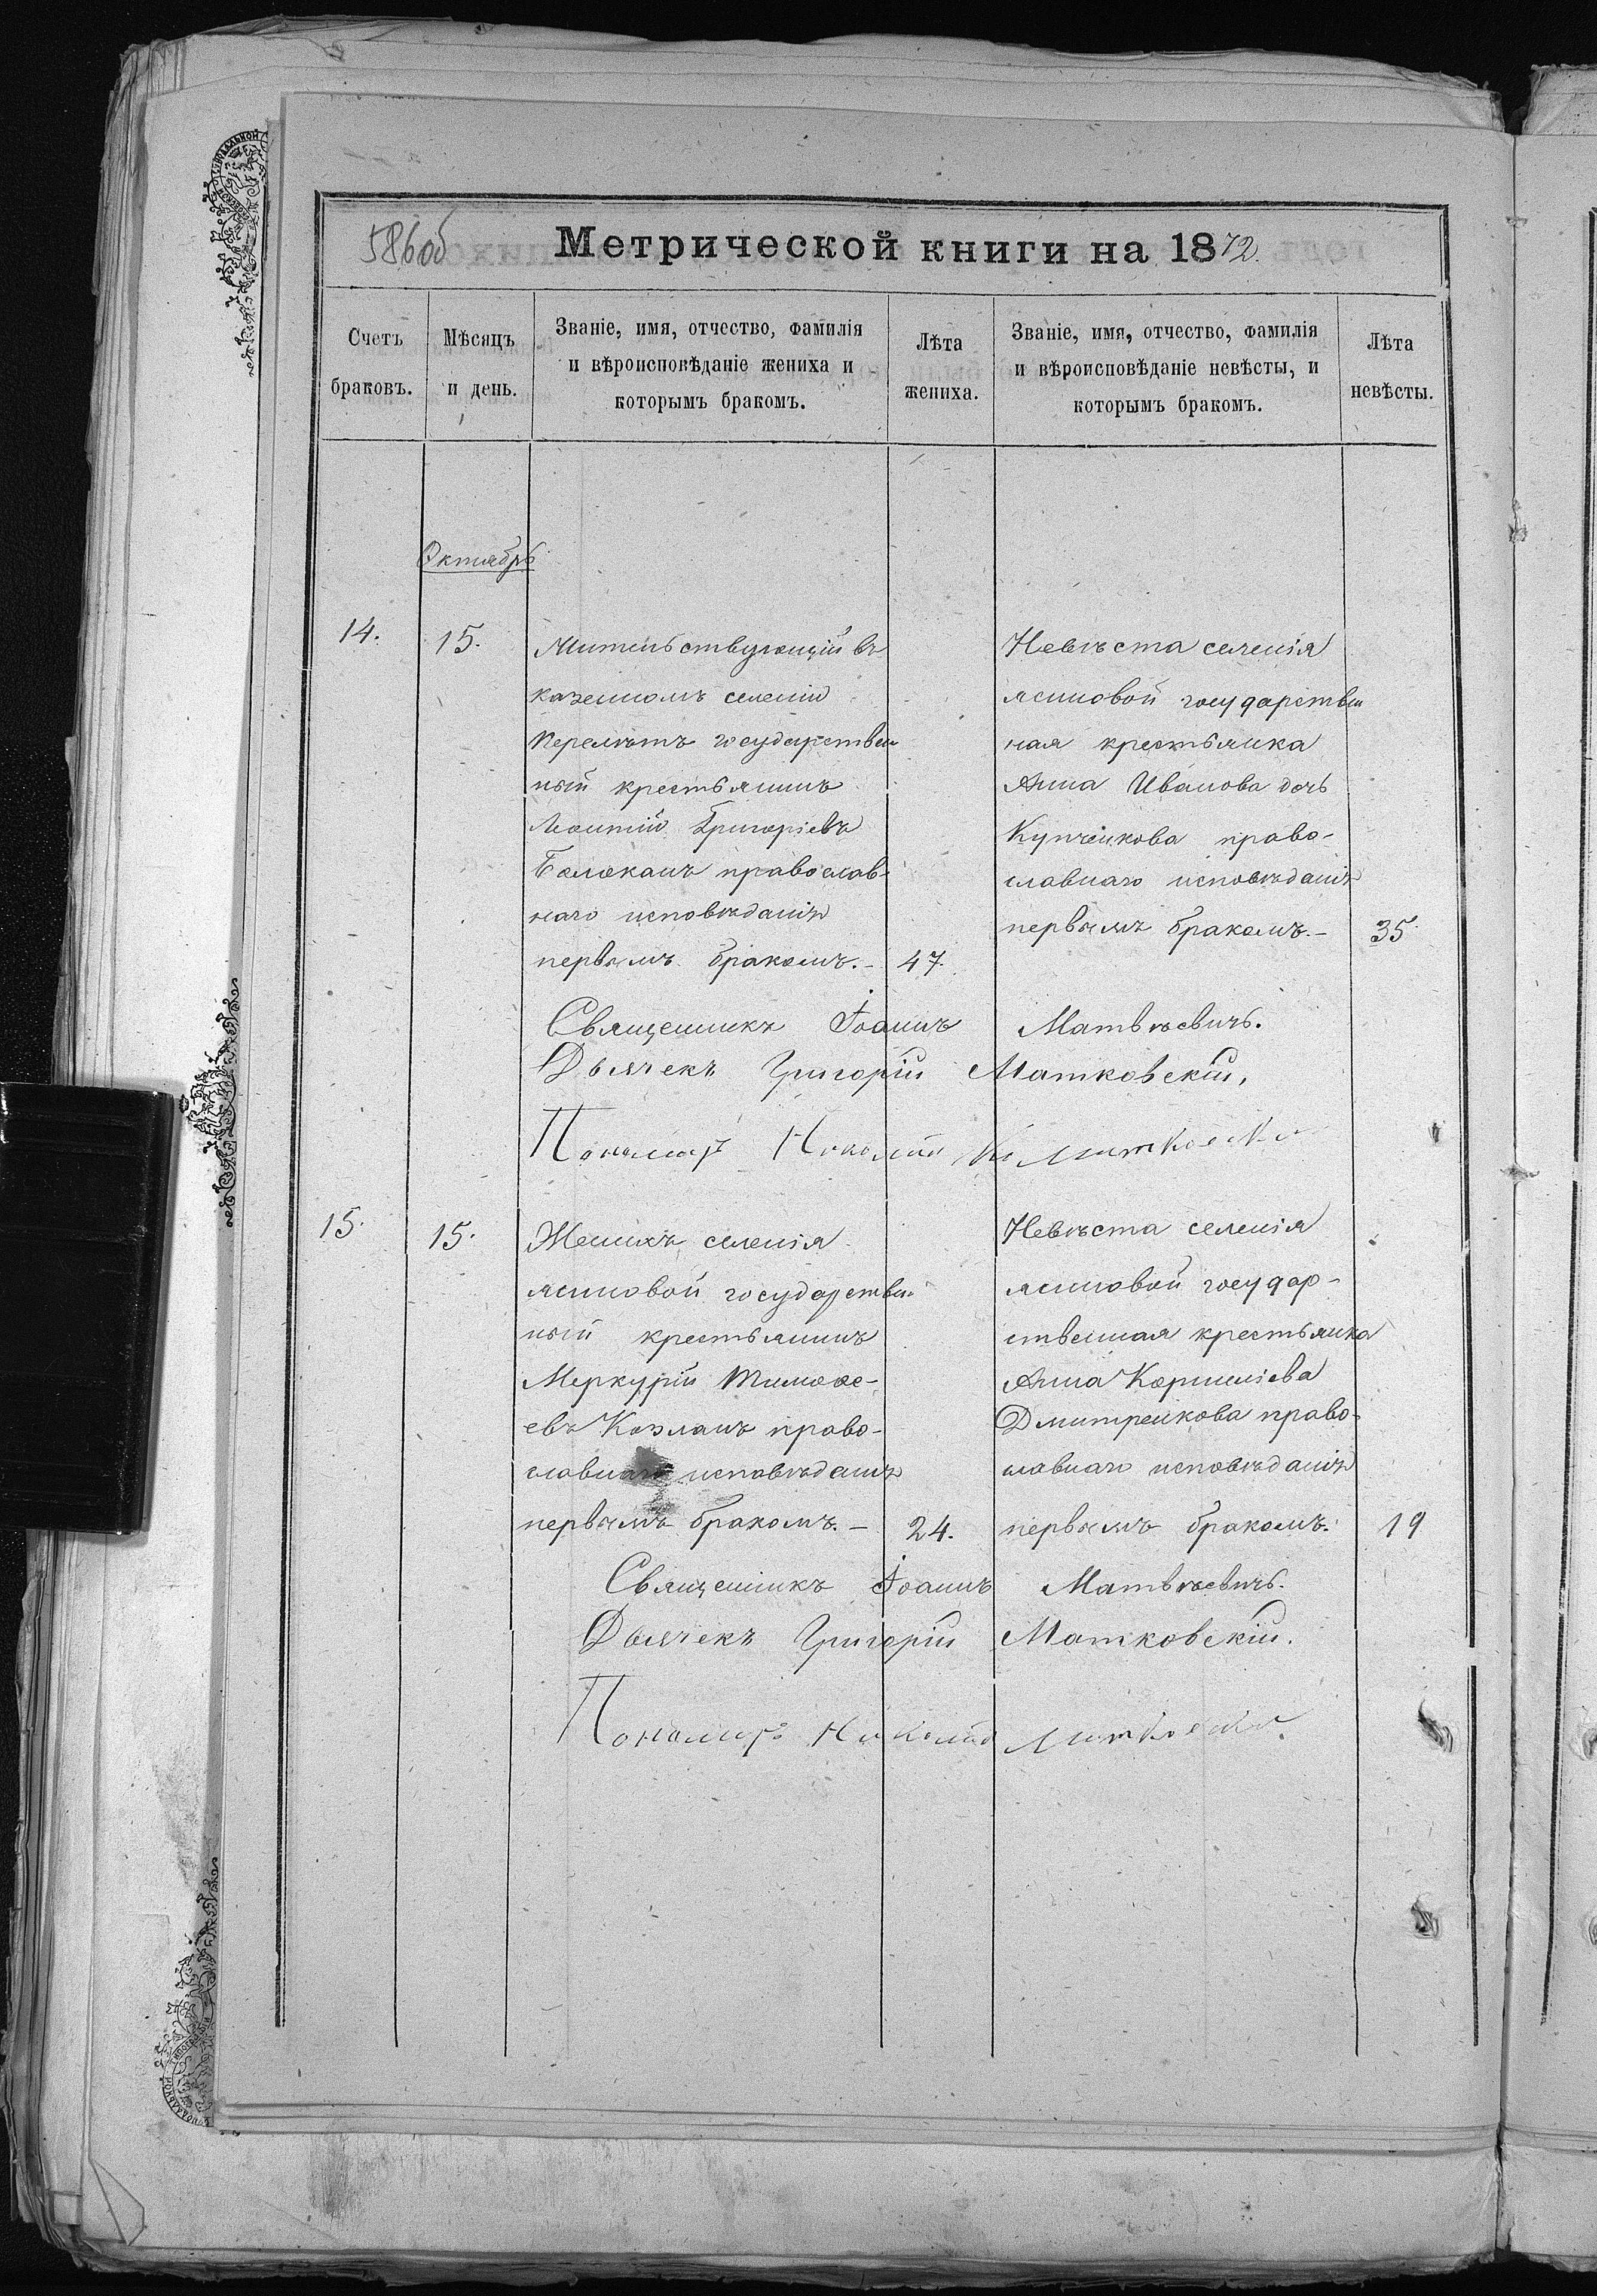 586об Метрической книги на 1872.
Счетъ браковъ.
Мѣсяцъ и день.
Званіе, имя, отчество, фамилія
и вѣроисповѣданіе жениха и
которымъ бракомъ.
Лѣта жениха.
Званіе, имя, отчество, фамилія
и вѣроисповѣданіе невѣсты, и
которымъ бракомъ.
Лѣта невѣсты.
Октябрь
14.
15.
Жительствующій въ
казенномъ селеніи
Перелѣтъ государствен
ный крестьянинъ
Леонтій Григоріевъ
православ-
наго исповѣданія
первымъ бракомъ.- 47.
Невѣста селенія
ясиновой государствен
ная крестьянка
Анна Иванова дочь
Купчейкова право-
славнаго исповѣданія
первымъ бракомъ.- 35.
Священникъ Іоаннъ Матвѣевичъ.
Дьячекъ Григорій Матковскій,
Пономарь Николай
15.
15.
Женихъ селенія
ясиновой государствен
ный крестьянинъ
Меркурій Тимоѳе-
евъ Козланъ право-
славнаго исповѣданія
первымъ бракомъ.- 24.
Невѣста селенія
ясиновой государ-
ственная крестьянка
Анна Корниліева
Дмитренкова право-
славнаго исповѣданія
первымъ бракомъ. 19
Священникъ Іоаннъ Матвѣевичъ.
Дьячекъ Григорій Матковскій.
Пономарь Николай